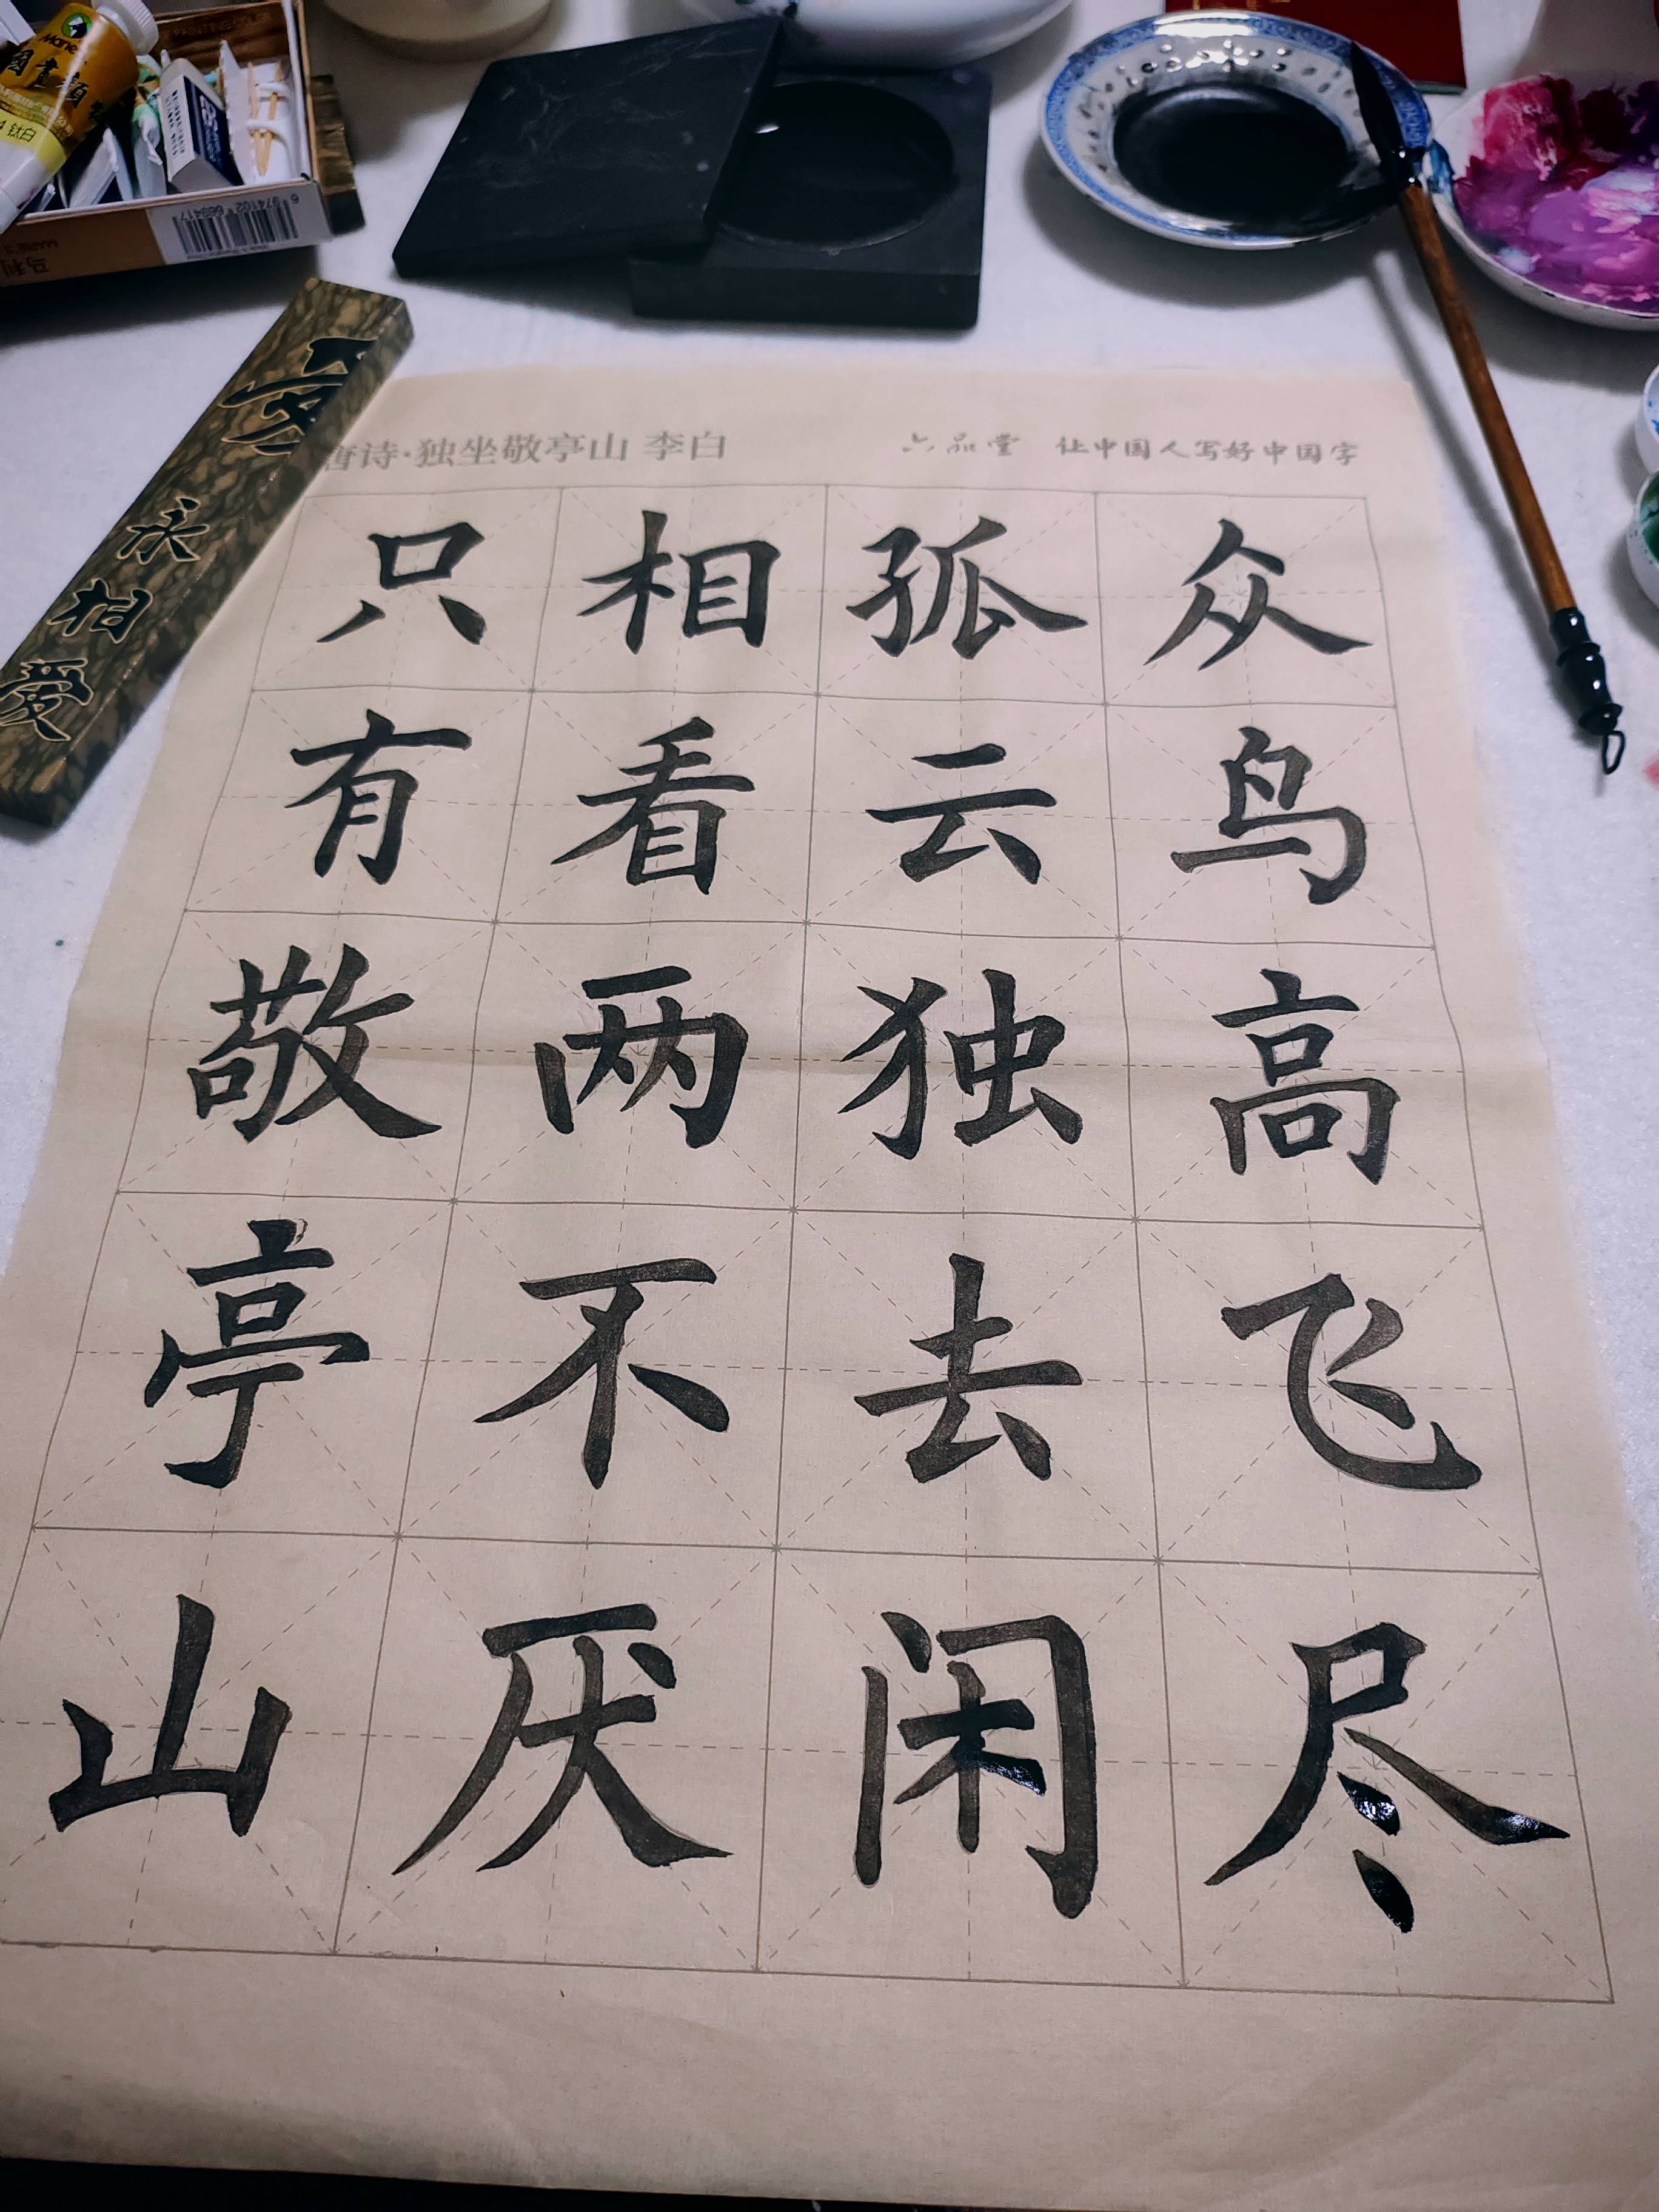 唐诗·独坐敬亭山 李白
六品堂 让中国人写好中国字
众鸟高飞尽
孤云独去闲
相看两不厌
只有敬亭山
永相爱
Marie's
钛白
马利
MARIE'S
6 974102 669417